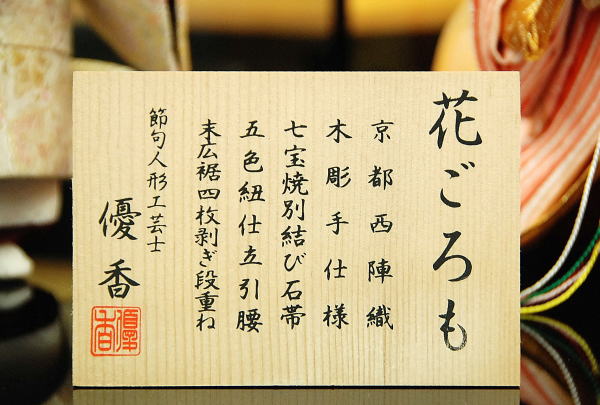 花ごろも
京都西陣織
木彫手仕様
七宝焼別結び石帯
五色紐仕立引腰
末広裾四枚剥ぎ段重ね
節句人形工芸士
優香
優香